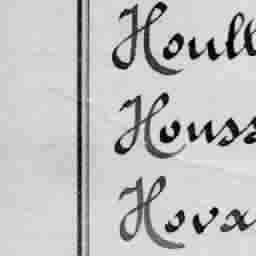 Houll
Houss
Hova